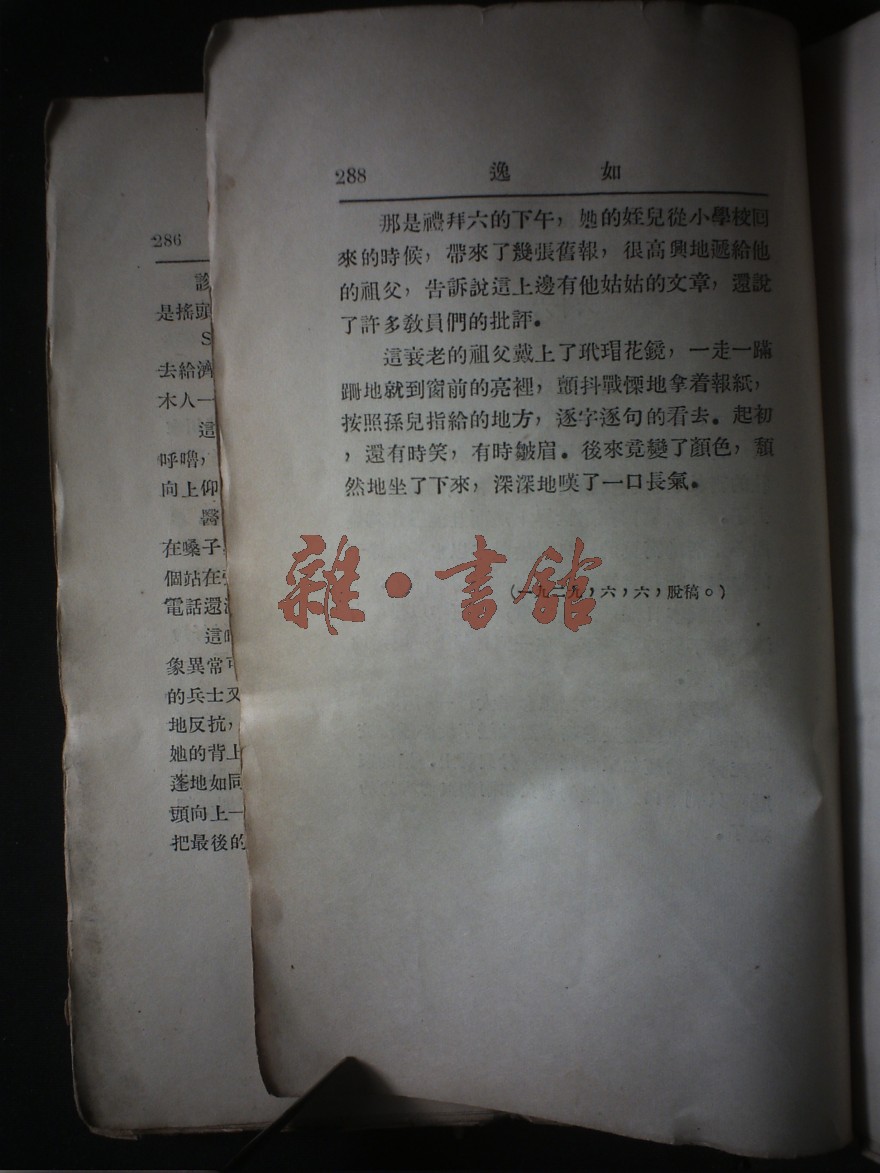 288 逸如
那是禮拜六的下午，她的姪兒從小學校回
來的時候，帶來了幾張舊報，很高興地遞給他
的祖父，告訴說這上邊有他姑姑的文章，還說
了許多敎員們的批評。
這衰老的祖父戴上了玳瑁花鏡，一走一蹣
跚地就到窗前的亮裡，顫抖戰慄地拿着報紙，
按照孫兒指給的地方，逐字逐句的看去。起初
，還有時笑，有時皺眉。後來竟變了顏色，頹
然地坐了下來，深深地嘆了一口長氣。
（一九二九，六，六，脫稿。）
雜·書館
286
診
是搖頭
S
去給濟
木人一
這
呼嚕，
向上仰
醫
在嗓子
個站在
電話還沒
這時
象異常可
的兵士又
地反抗，
她的背上
蓬地如同
頭向上一
把最後的